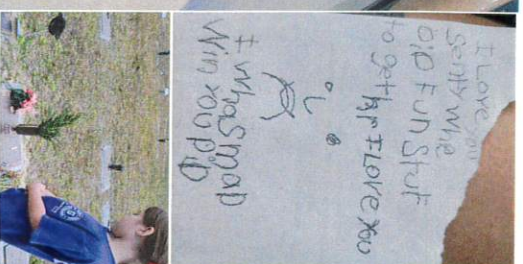 I Love you
Senly whe
DiD FUN StUF
to get hr I Love you
I whas map
Win You DiD